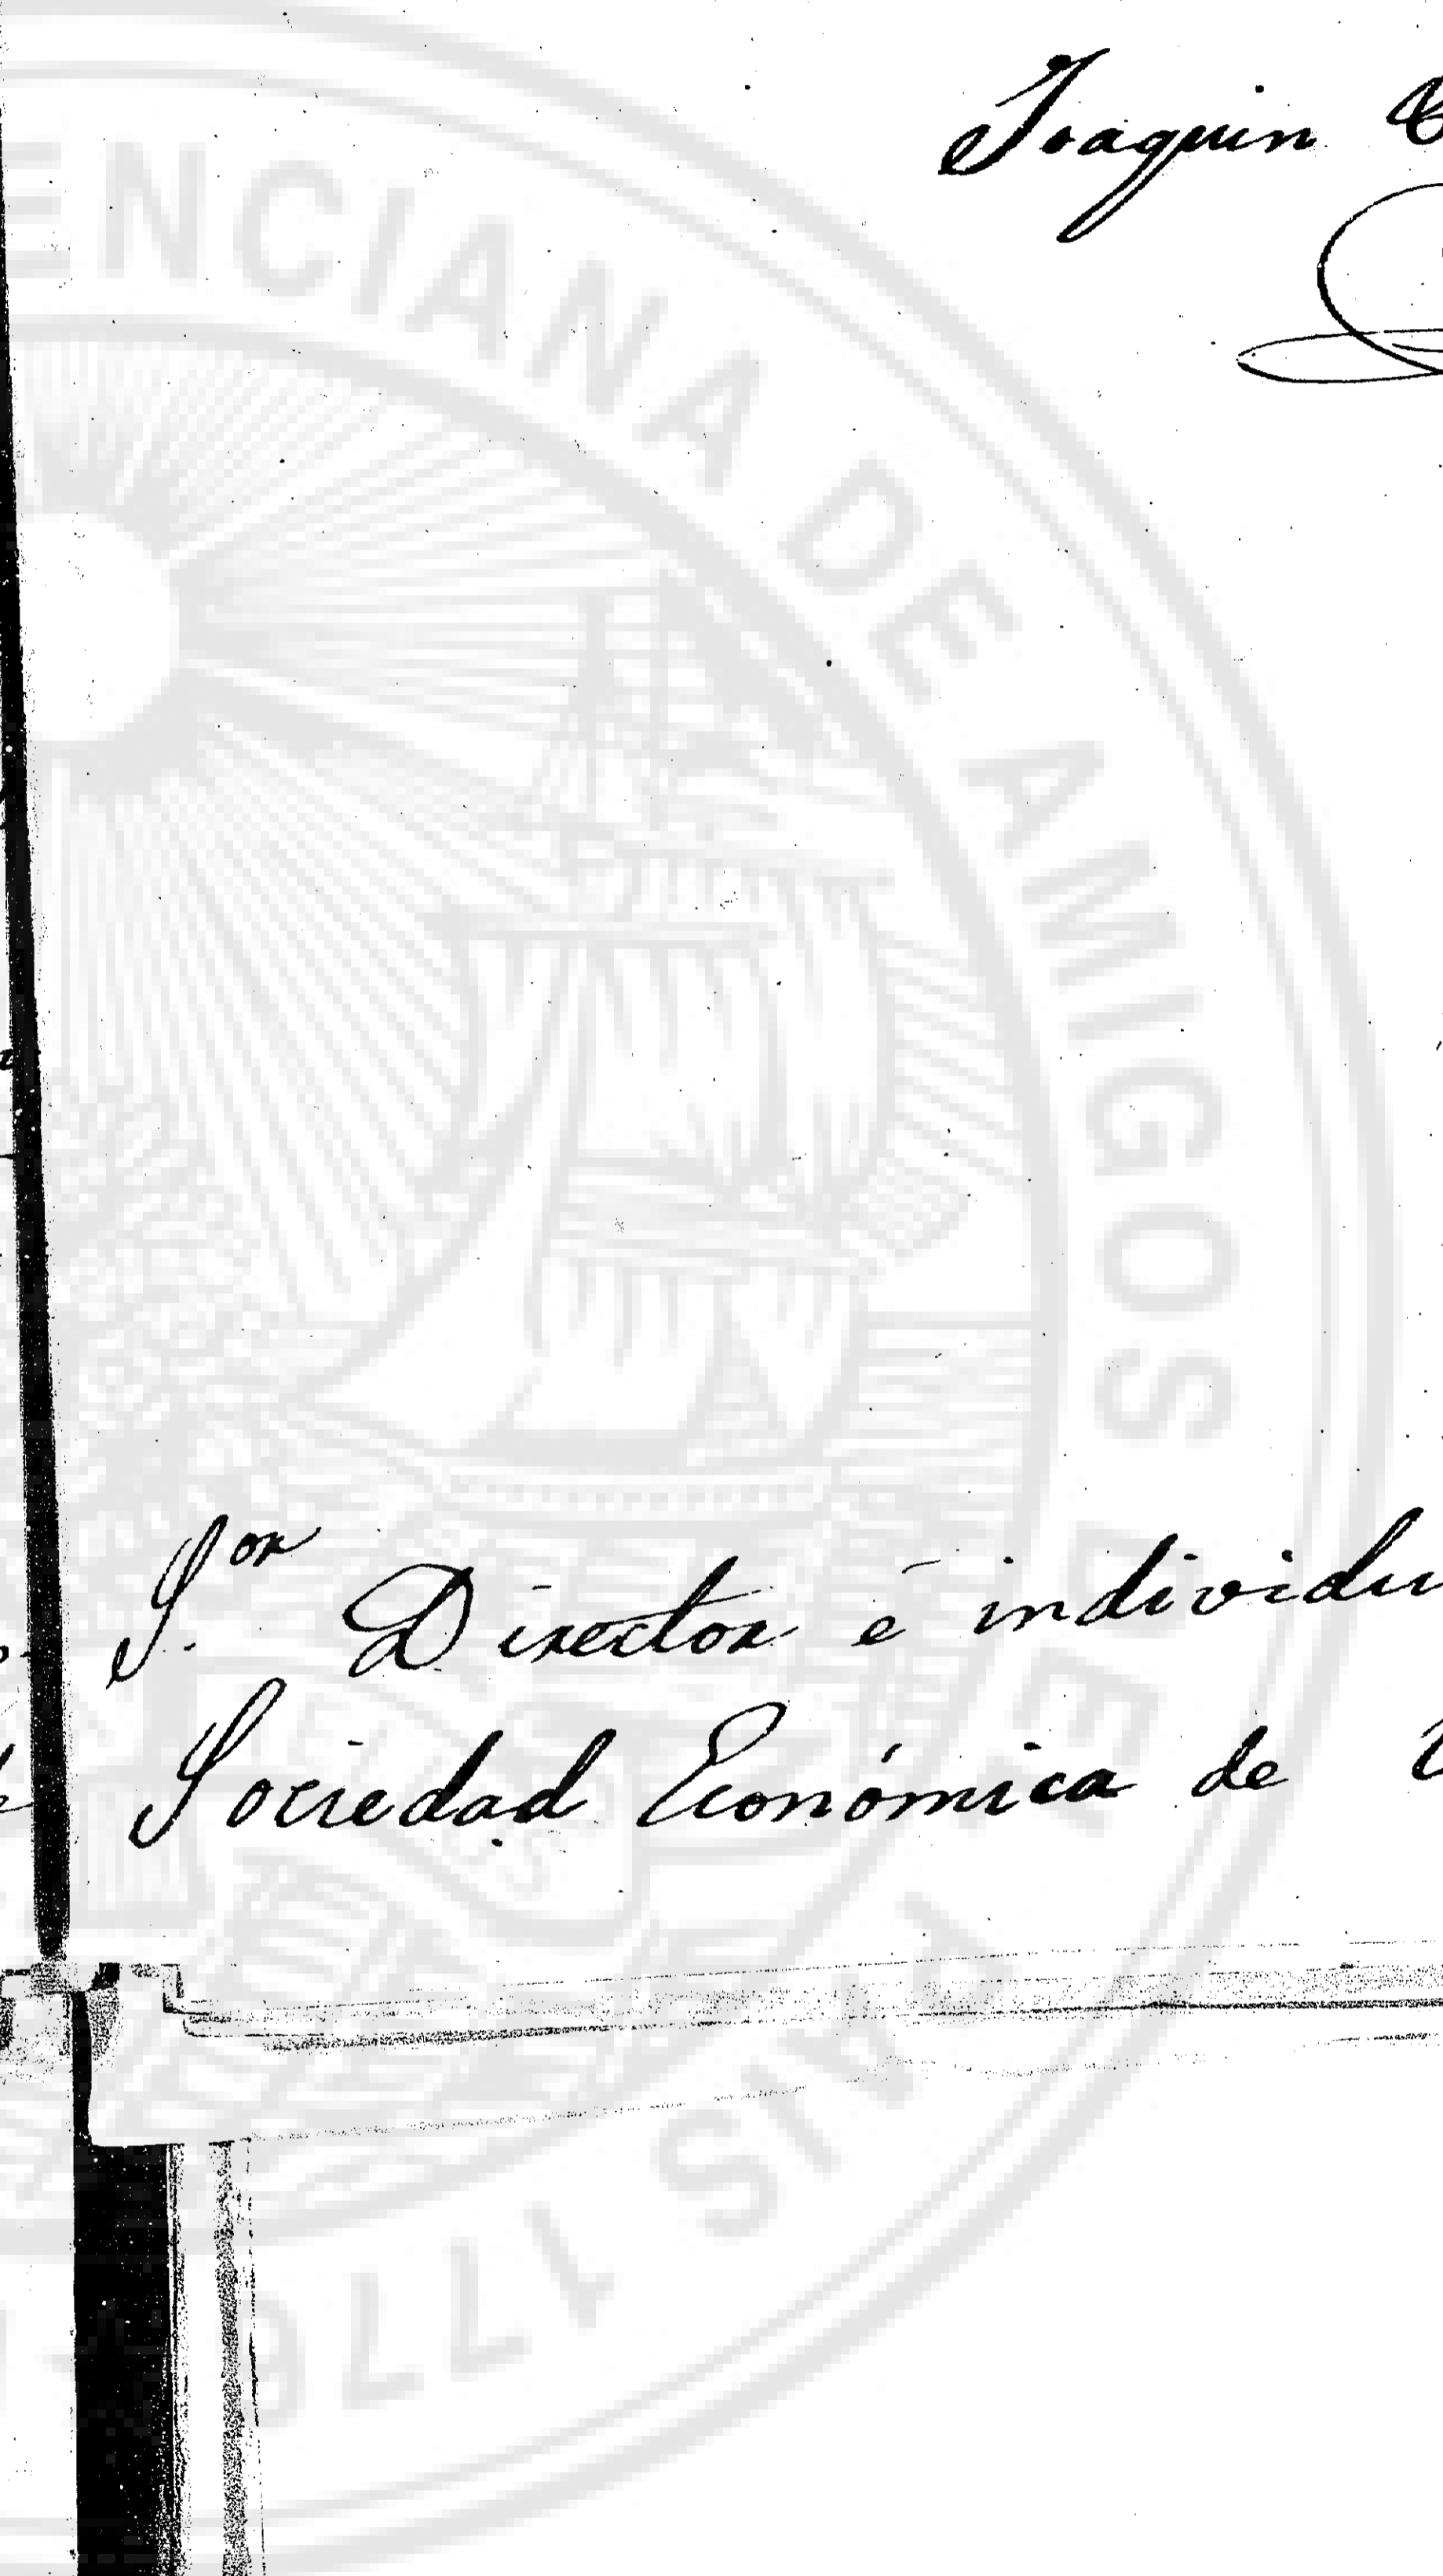 Joaquin
S.or Director é individu
Sociedad Económica de
ENCIANA DE AMIGOS DEL PAIS 1776